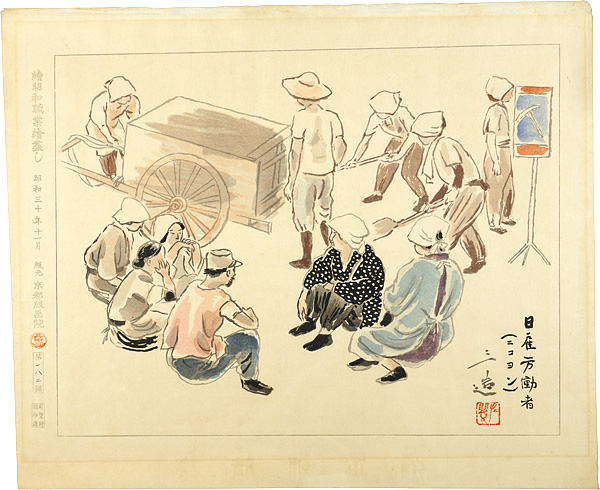 日雇労働者
(ニコヨン)
三造
續昭和職業繪盡し
昭和三十年十一月
版元 京都版画院